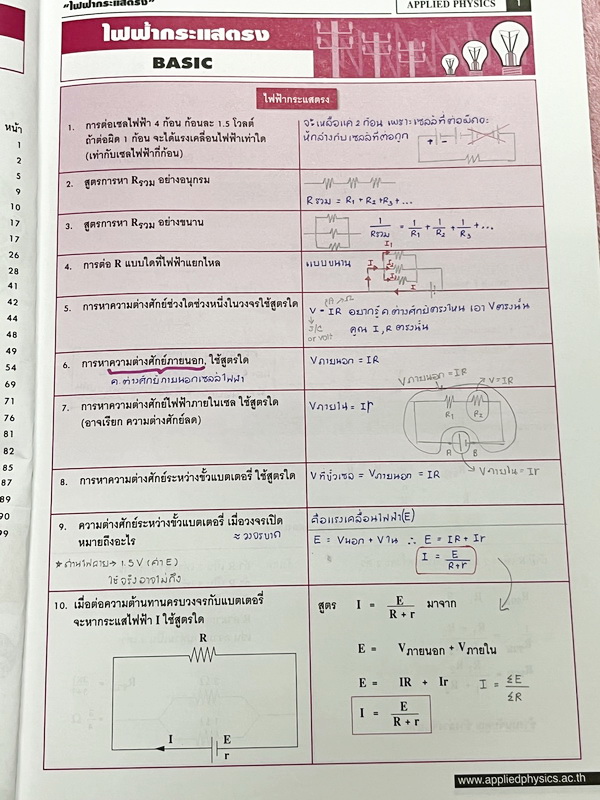 "ไฟฟ้ากระแสตรง"
APPLIED PHYSICS
1
ไฟฟ้ากระแสตรง
BASIC
ไฟฟ้ากระแสตรง
1. การต่อเซลไฟฟ้า 4 ก้อน ก้อนละ 1.5 โวลต์
ถ้าต่อผิด 1 ก้อน จะได้แรงเคลื่อนไฟฟ้าเท่าใด
(เท่ากับเซลไฟฟ้ากี่ก้อน)
จะเหลือแค่ 2 ก้อน เพราะเซลล์ที่ต่อผิดจะ
หักล้างกับเซลล์ที่ต่อถูก
+ -
2. สูตรการหา Rรวม อย่างอนุกรม
Rรวม = R1 + R2 + R3 + ...
3. สูตรการหา Rรวม อย่างขนาน
1/Rรวม = 1/R1 + 1/R2 + 1/R3 + ...
4. การต่อ R แบบใดที่ไฟฟ้าแยกไหล
แบบขนาน
I1
I
I
5. การหาความต่างศักย์ช่วงใดช่วงหนึ่งในวงจรใช้สูตรใด
V = IR อยากรู้ค.ต่างศักย์ตรงไหน เอา Vตรงนั้น
J/C
or volt
คูณ I, R ตรงนั้น
6. การหาความต่างศักย์ภายนอก, ใช้สูตรใด
ค.ต่างศักย์ภายนอกเซลล์ไฟฟ้า
Vภายนอก = IR
7. การหาความต่างศักย์ไฟฟ้าภายในเซล ใช้สูตรใด
(อาจเรียก ความต่างศักย์ลด)
Vภายใน = Ir
Vภายนอก = IR
V=IR
R1 R2
A B
Vภายใน = Ir
8. การหาความต่างศักย์ระหว่างขั้วแบตเตอรี่ ใช้สูตรใด
Vที่ขั้วเซล = Vภายนอก = IR
9. ความต่างศักย์ระหว่างขั้วแบตเตอรี่ เมื่อวงจรเปิด
หมายถึงอะไร
≈ วงจรขาด
* ถ่านไฟฉาย → 1.5 V (ค่า E)
ใช้จริงอาจไม่ถึง
คือแรงเคลื่อนไฟฟ้า(E)
E = Vนอก + Vใน ∴ E = IR + Ir
I = E/R+r
10. เมื่อต่อความต้านทานครบวงจรกับแบตเตอรี่
จะหากระแสไฟฟ้า I ใช้สูตรใด
R
I
E
r
สูตร I = E/R + r มาจาก
E = Vภายนอก + Vภายใน
E = IR + Ir
I = ΣE/ΣR
I = E/R + r
www.appliedphysics.ac.th
หน้า
1
2
5
9
10
17
17
26
28
41
42
44
48
49
54
69
71
76
81
82
85
87
89
90
99